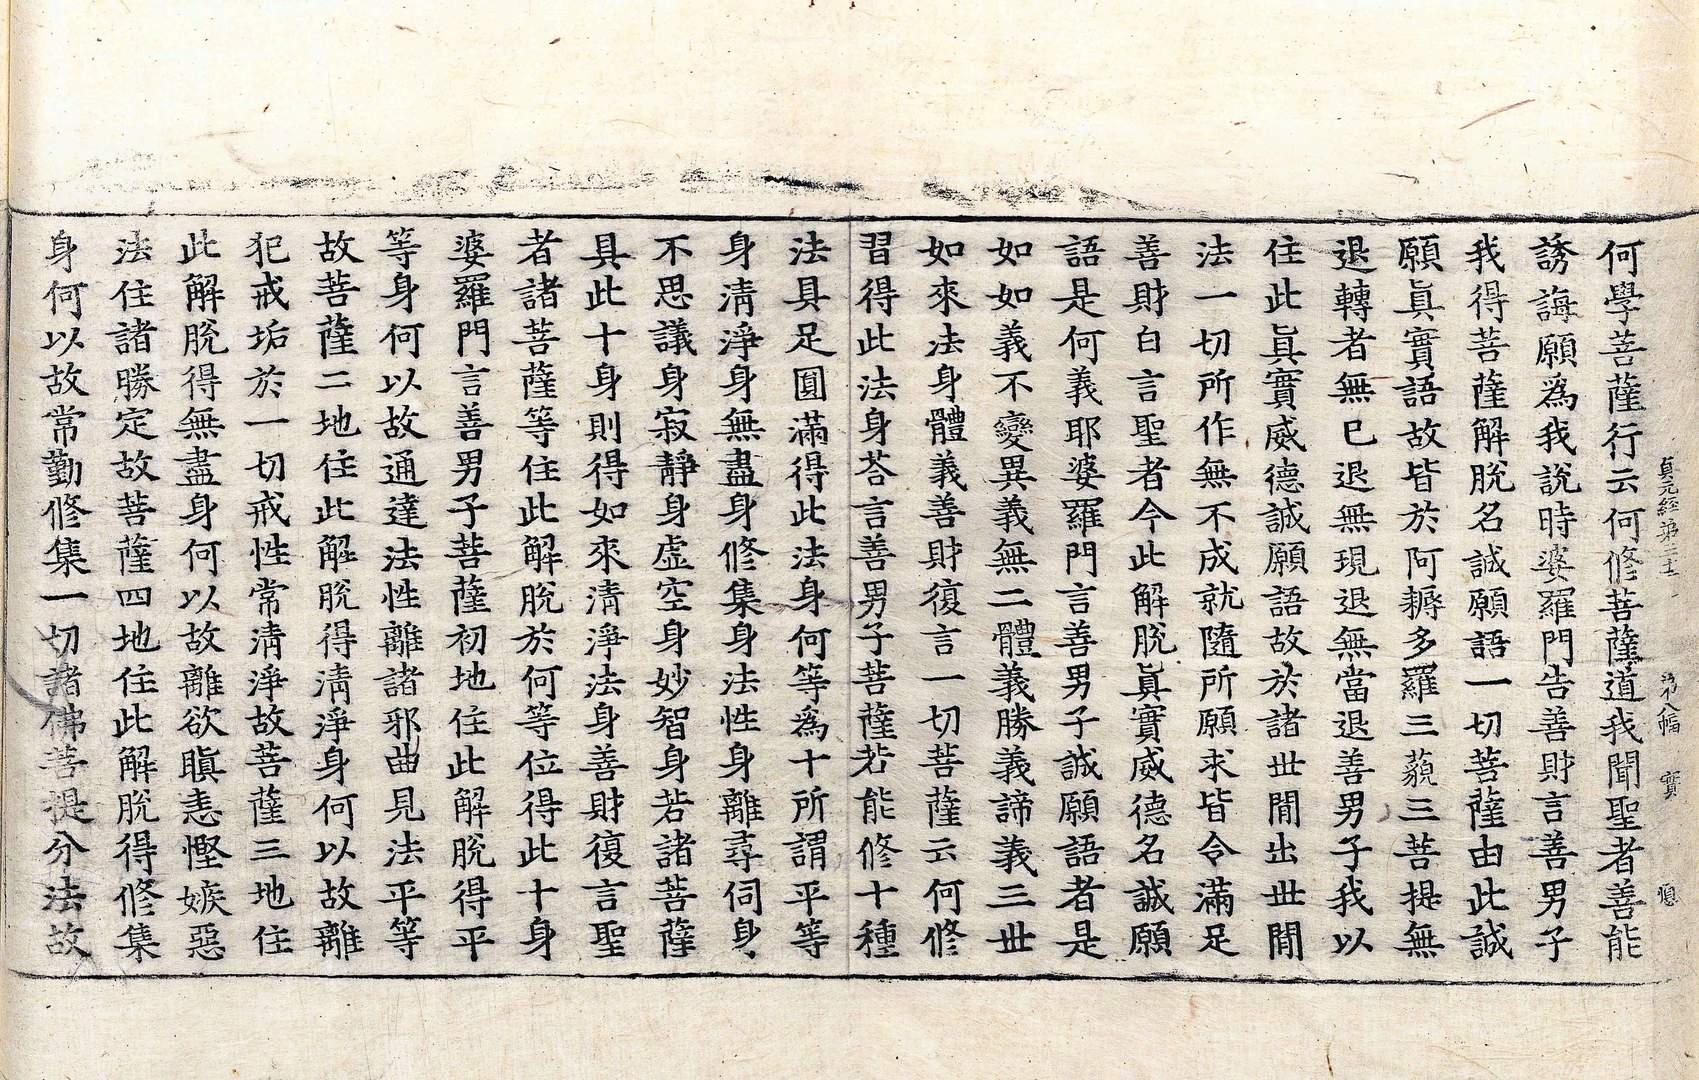 何學菩薩行云何修菩薩道我聞聖者善能
誘誨願爲我說時婆羅門告善財言善男子
我得菩薩解脫名誠願語一切菩薩由此誠
願眞實語故皆於阿耨多羅三藐三菩提無
退轉者無已退無現退無當退善男子我以
住此眞實威德誠願語故於諸世間出世間
法一切所作無不成就隨所願求皆令滿足
善財白言聖者今此解脫眞實威德名誠願
語是何義耶婆羅門言善男子誠願語者是
如如義不變異義無二體義勝義諦義三世
如來法身體義善財復言一切菩薩云何修
習得此法身荅言善男子菩薩若能修十種
法具足圓滿得此法身何等爲十所謂平等
身淸淨身無盡身修集身法性身離尋伺身
不思議身寂靜身虛空身妙智身若諸菩薩
具此十身則得如來淸淨法身善財復言聖
者諸菩薩等住此解脫於何等位得此十身
婆羅門言善男子菩薩初地住此解脫得平
等身何以故通達法性離諸邪曲見法平等
故菩薩二地住此解脫得淸淨身何以故離
犯戒垢於一切戒性常淸淨故菩薩三地住
此解脫得無盡身何以故離欲瞋恚慳嫉惡
法住諸勝定故菩薩四地住此解脫得修集
身何以故常勤修集一切諸佛菩提分法故